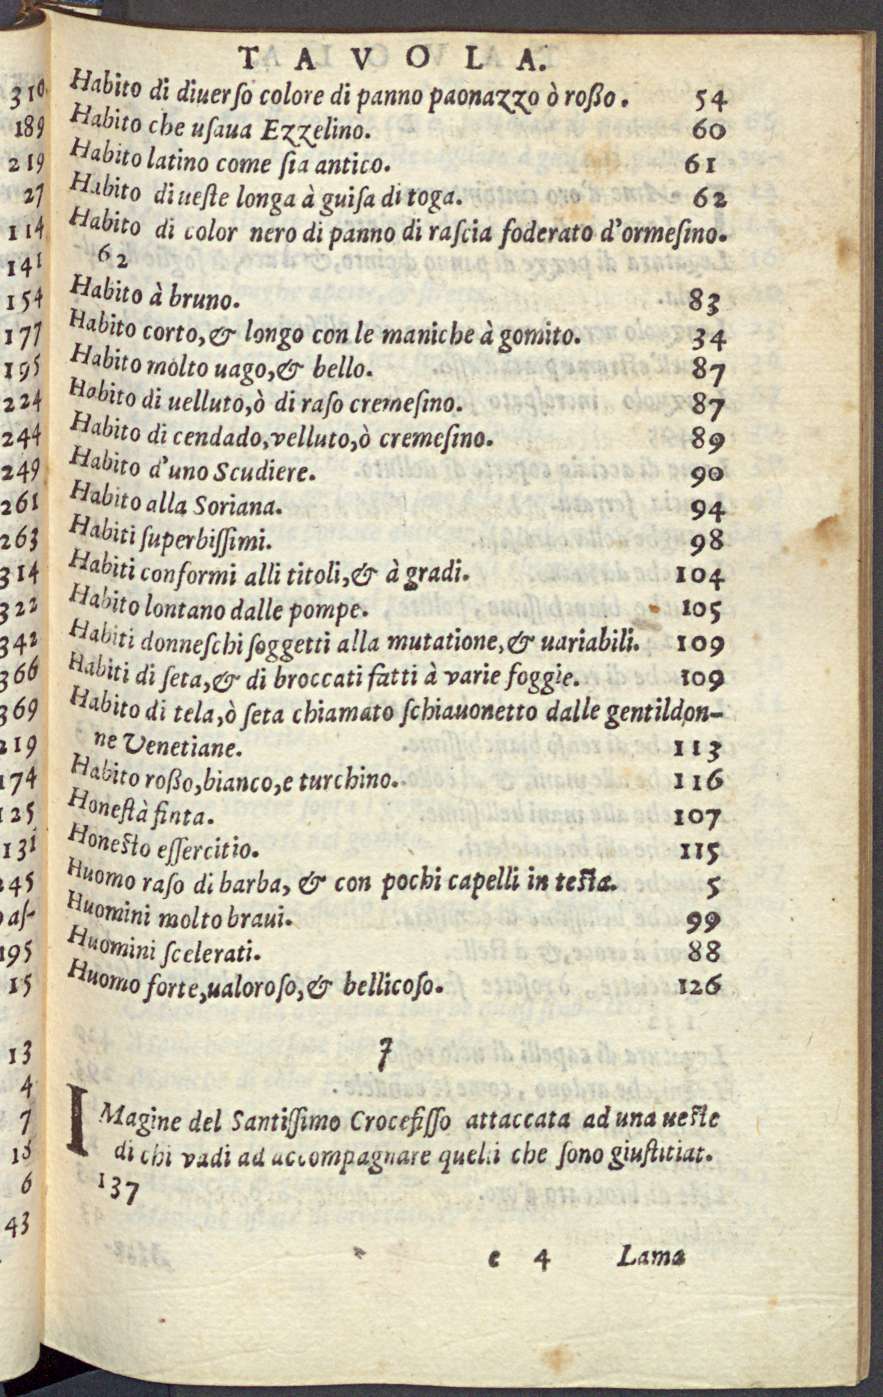 TAVOLA.
Habito di diuerſo colore di panno paonazzo ò roßo. 54
Habito che uſaua Ezzelino. 60
Habito latino come ſia antico. 61
Habito di ueſte longa à guiſa di toga. 62
Habito di color nero di panno di raſcia foderato d'ormeſino.
62
Habito à bruno. 83
Habito corto, & longo con le maniche à gomito. 34
Habito molto uago, & bello. 87
Habito di uelluto, ò di raſo cremeſino. 87
Habito di cendado, velluto, ò cremeſino. 89
Habito d'uno Scudiere. 90
Habito alla Soriana. 94
Habiti ſuperbiſſimi. 98
Habiti conformi alli titoli, & à gradi. 104
Habito lontano dalle pompe. 105
Habiti donneſchi ſoggetti alla mutatione, & uariabili. 109
Habiti di ſeta, & di broccati fatti à varie foggie. 109
Habito di tela, ò ſeta chiamato ſchiauonetto dalle gentildon-
ne Venetiane. 113
Habito roßo, bianco, e turchino. 116
Honeſtà finta. 107
Honeſto eſſercitio. 115
Huomo raſo di barba, & con pochi capelli in teſta. 5
Huomini molto braui. 99
Huomini ſcelerati. 88
Huomo forte, ualoroſo, & bellicoſo. 126
I
IMagine del Santiſſimo Crocefiſſo attaccata ad una ueſte
di chi vadi ad accompagnare quelli che ſono giuſtitiat.
137
e 4 Lama
310
189
219
27
114
141
154
177
195
224
244
249
261
263
314
322
342
366
369
219
174
125
131
245
aſ-
195
15
13
4
7
18
6
43